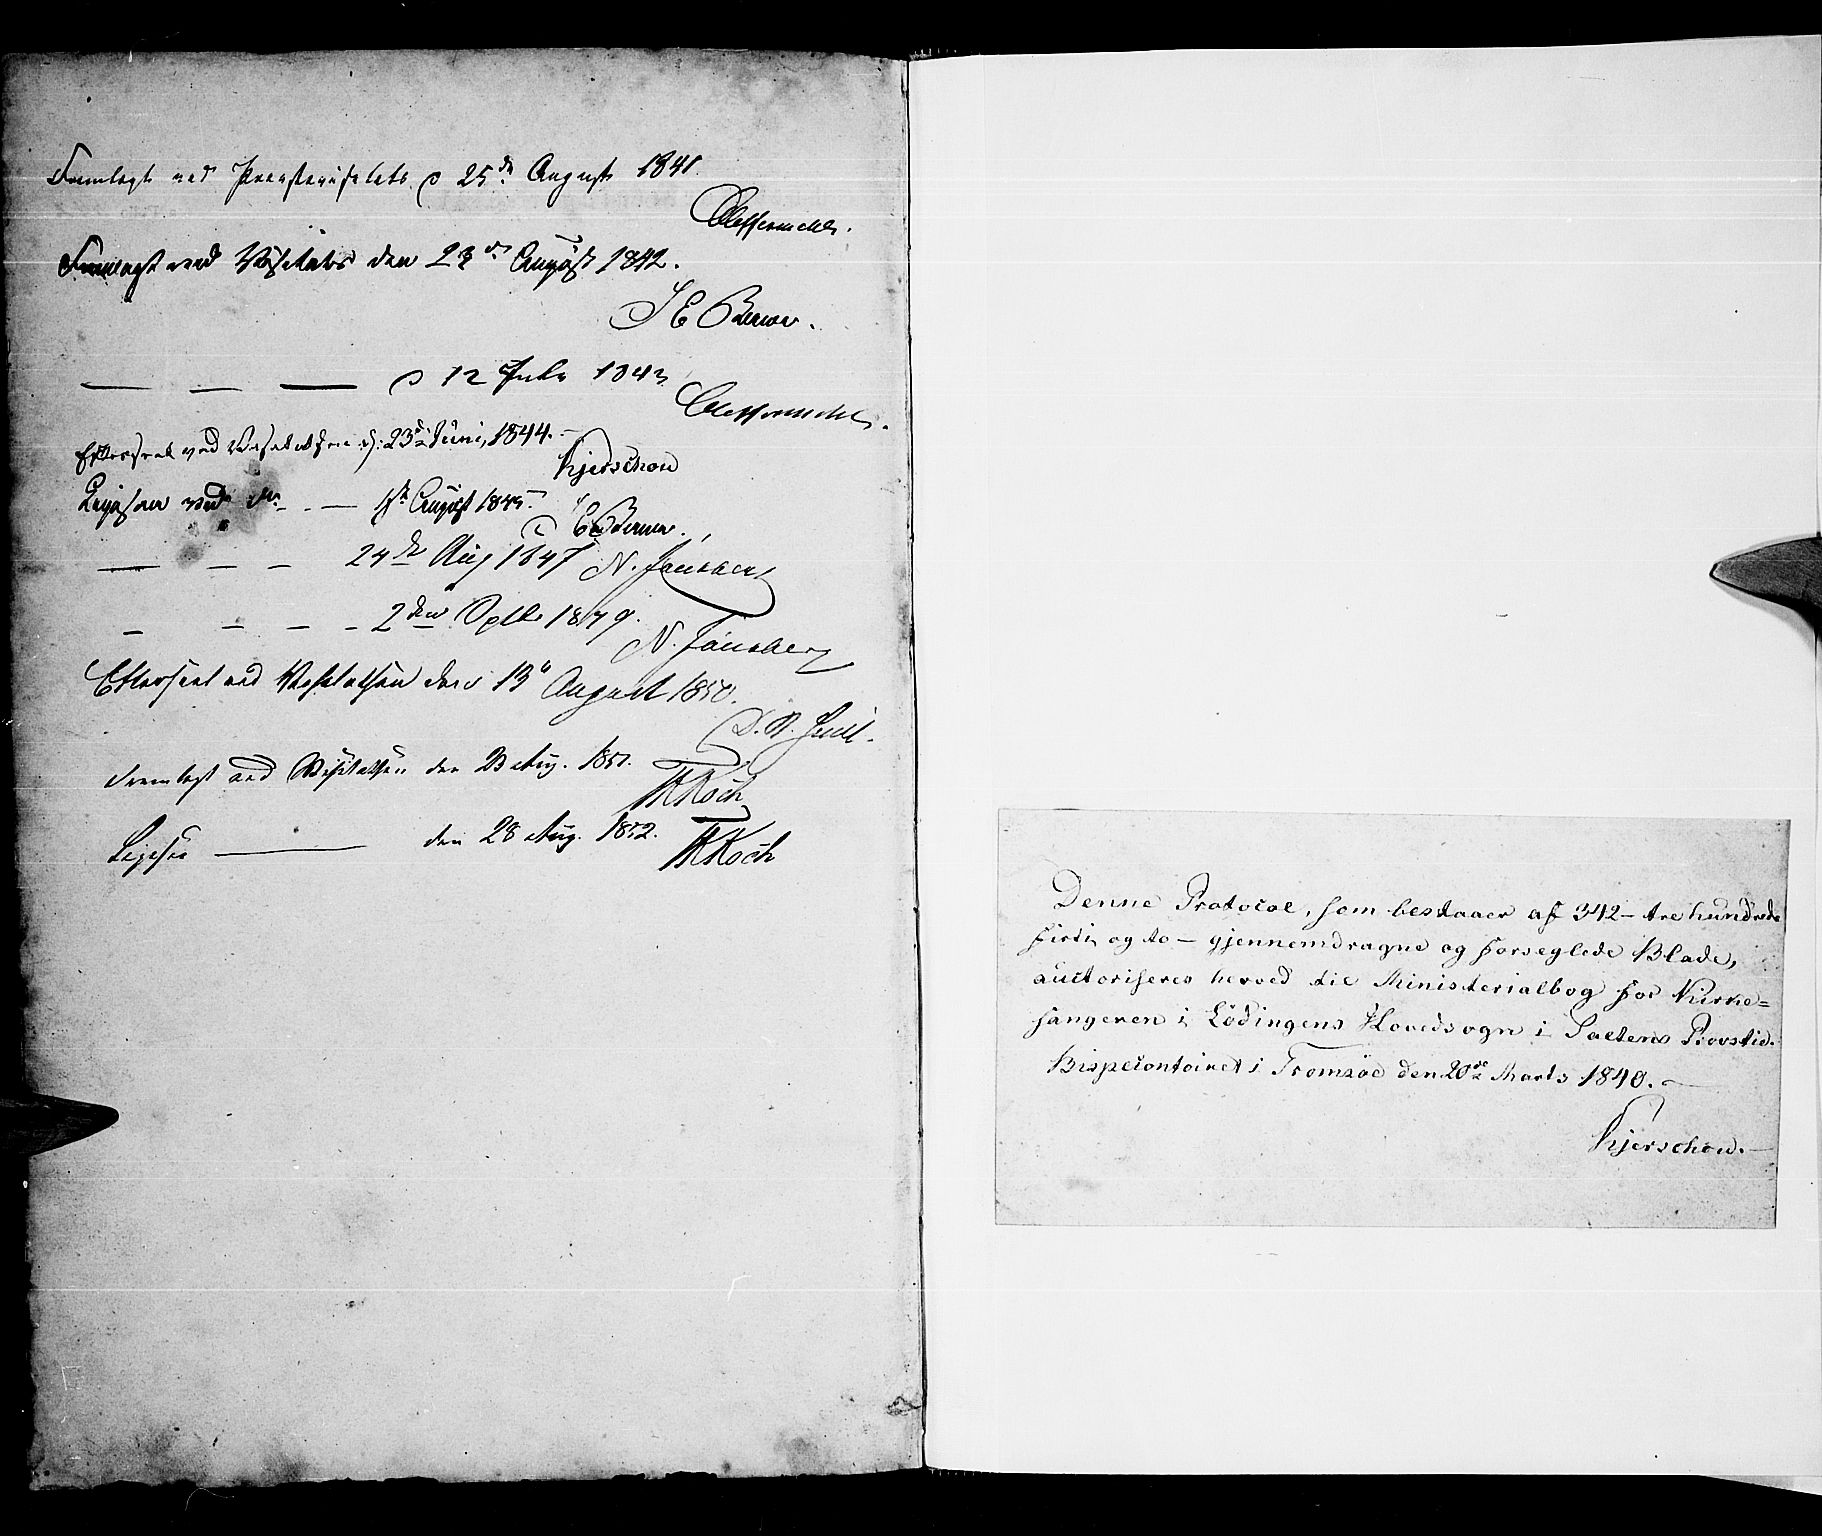 Fremlagt ved Provstevisitats d 25de August 1841.
Fremlagt ved Visitats den 23de August 1842.
J E Berner.
— — — d 12 Juli 1843
Efterseet ved Visitatsen d. 23de Juni, 1844.
Kjerschow
Ligesaa ved do. — 1ste August 1845.
J E Berner.
— — — 24de Aug 1847 N. Jonsberg
— — — — 2den Septbr 1849.
N. Jonsberg
Efterseet ved Visitatsen den 13de August 1850.
D. B. Juell.
Fremlagt ved Visitatsen den 23 Aug. 1851.
Koch
Ligesaa — den 28 Aug. 1852.
Koch
Denne Protocol, som bestaaer af 342 - tre hundrede
firti og to - gjennemdragne og forseglede Blade,
auctoriseres herved til Ministerialbog for Kirke=
sangeren i Lödingens Hovedsogn i Saltens Provstie.
Bispecontoiret i Tromsöe den 20de Marts 1840. —
Kjerschow. —